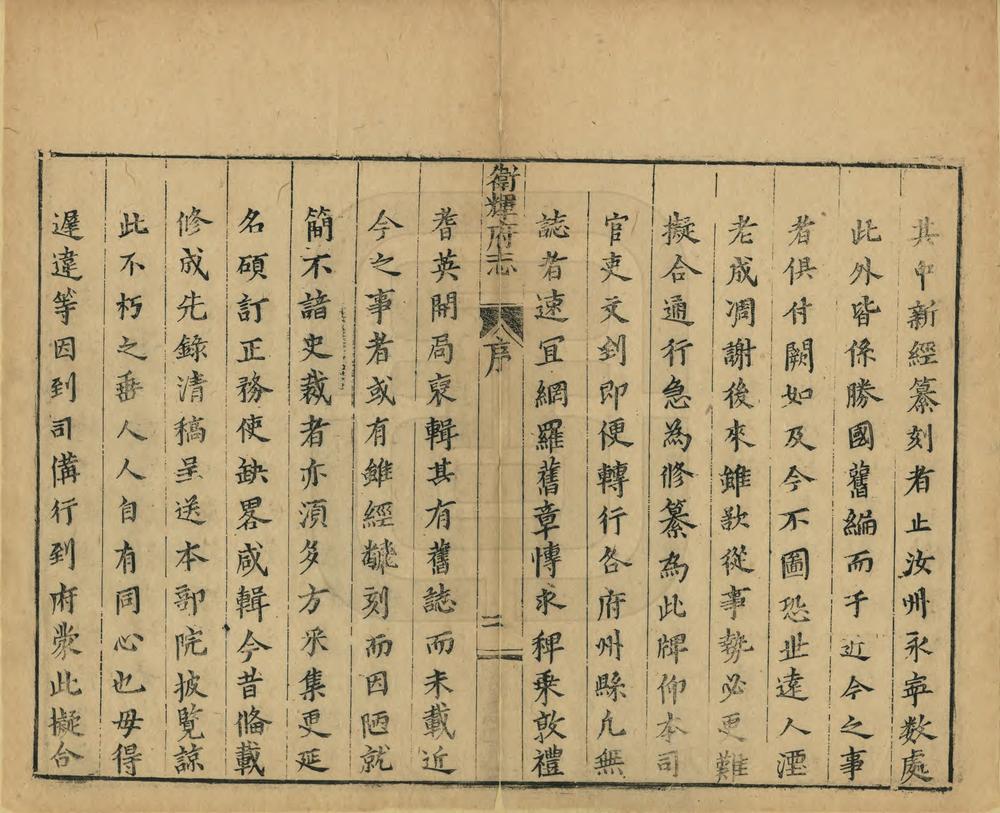 其中新經纂刻者止汝州永寧数處
此外皆係勝國舊編而于近今之事
者俱付闕如及今不圖恐世遠人湮
老成凋謝後來雖欲從事勢必更難
擬合通行急為修纂為此牌仰本司
官吏文到即便轉行各府州縣凡無
誌者速宜網羅舊章愽求稗乗敦禮
衛輝府志
序
二
耆英開局裒輯其有舊誌而未載近
今之事者或有雖經鋟刻而因陋就
簡不諳史裁者亦湏多方采集更延
名碩訂正務使缺畧咸輯今昔俻載
修成先錄清稿呈送本部院披覽諒
此不朽之垂人人自有同心也毋得
遲違等因到司備行到府蒙此擬合